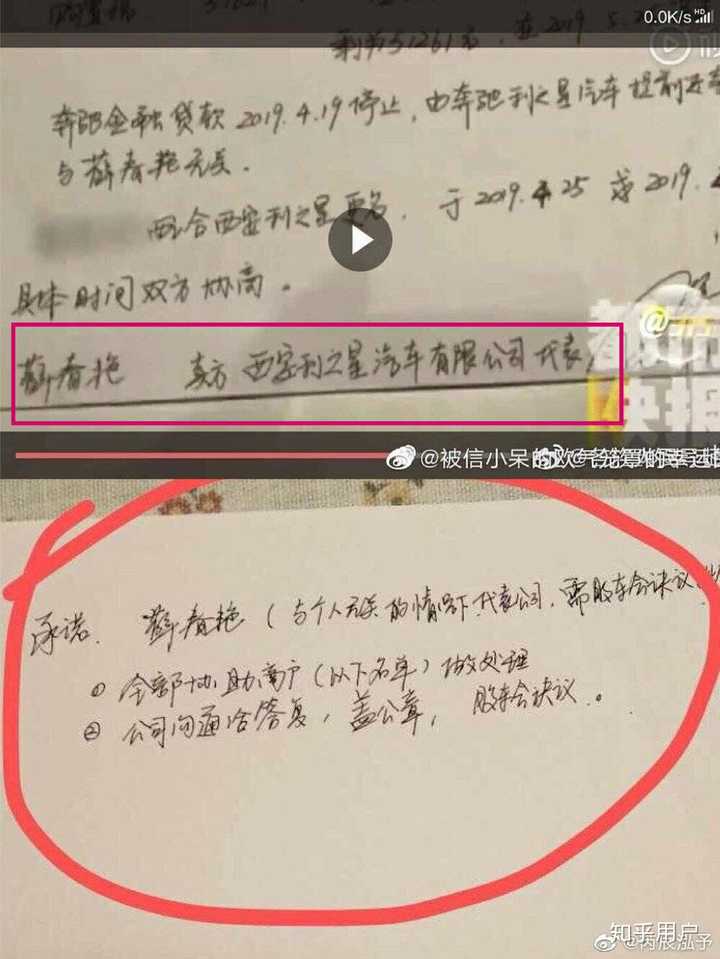 0.0K/s HD
剩余51261元,
奔驰金融贷款 2019.4.19 停止,由奔驰利之星汽车提前还
与薛春艳无关.
配合西安利之星更名,于2019.4.25 或 2019.
具体时间双方协商.
薛春艳 卖方 西安利之星汽车有限公司代表
@
快报
@被信小呆的欧气
承诺. 薛春艳(与个人无关的情况下代表公司,需股东会决议
① 全部协助商户(以下名单)做处理
② 公司沟通给答复,盖公章,股东会决议.
知乎用户
@丙辰泓予